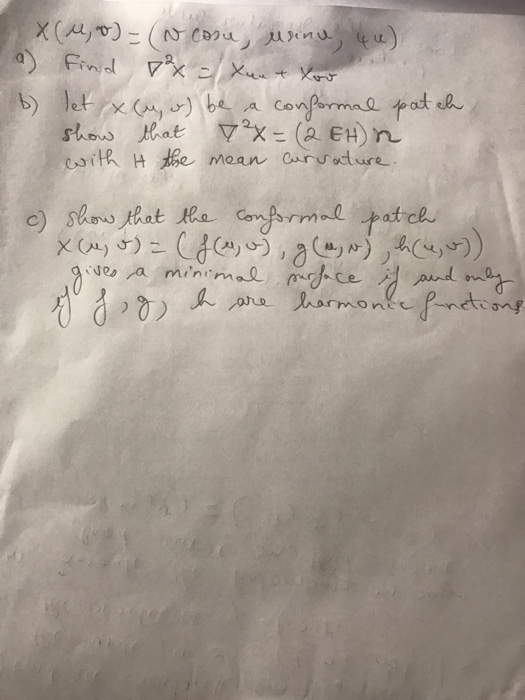 x(u,v) = (v cosu, usinu, 4u)
a) Find ∇²x = xuu + xvv
b) let x(u,v) be a conformal patch
show that ∇²x = (2 EH) n
with H the mean curvature.
c) show that the conformal patch
x(u,v) = (f(u,v), g(u,v), h(u,v))
gives a minimal surface if and only
if f, g, h are harmonic functions